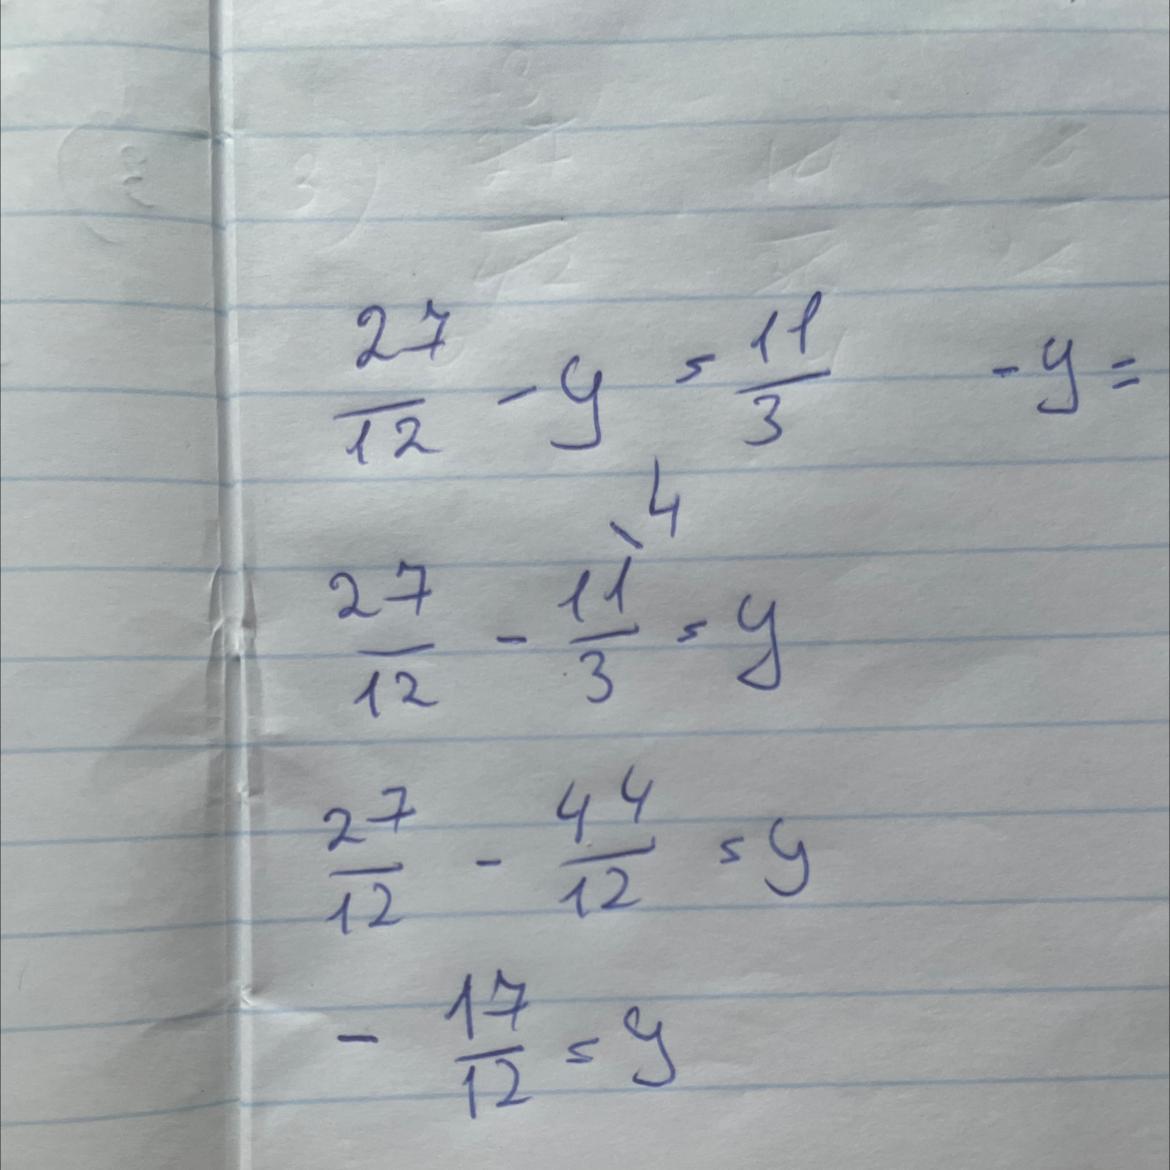 27/12 - y = 11/3    - y =
27/12 - 11/3 \4 = y
27/12 - 44/12 = y
- 17/12 = y